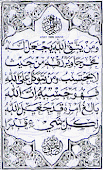 وَمَن يَتَّقِ اللَّهَ يَجْعَل لَّهُ
مَخْرَجًا وَيَرْزُقْهُ مِنْ حَيْثُ
لَا يَحْتَسِبُ وَمَن يَتَوَكَّلْ عَلَى اللَّهِ
فَهُوَ حَسْبُهُ إِنَّ اللَّهَ
بَالِغُ أَمْرِهِ قَدْ جَعَلَ اللَّهُ
لِكُلِّ شَيْءٍ قَدْرًا